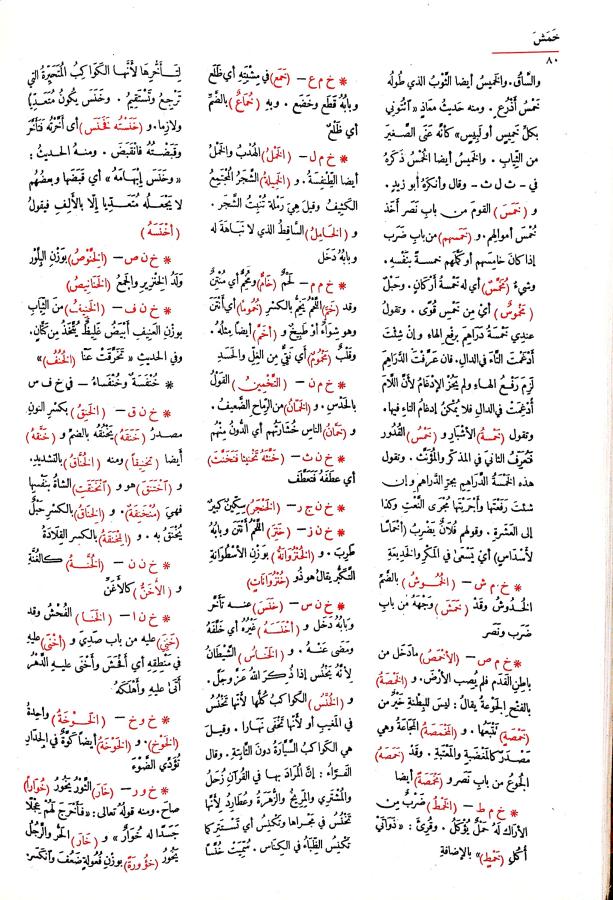 خَمَشَ
٨٠
والسَّاق. والخَمِيسُ أيضا الثَّوْبُ الذي طُولُه
خَمْسُ أَذْرُع. ومنه حديثُ مُعاذ «ائتُوني
بكلِّ خَمِيسٍ أو لَبِيس» كأنَّه عَنَى الصَّغيرَ
من الثِّياب. والخَمِيسُ أيضا الخُمْسُ ذَكَرَهُ
في - ث ل ث - وقال وأَنكَرَهُ أبو زيد.
و (خَمَسَ) القومَ من بابِ نَصَر أَخَذ
خُمْسَ أموالِهِم. و (خَمَسهم) من باب ضَرَب
إذا كان خامِسَهم أو كَمَّلَهم خمسةً بنَفْسِه.
وشيءٌ (مُخَمَّسٌ) أي له خمسةُ أركان. وحَبْلٌ
(مَخْمُوسٌ) أي من خَمْسِ قُوًى. وتقول
عِندِي خَمْسَةُ دراهِمَ برفع الهاء وإن شئتَ
أَدْغَمْتَ التاءَ في الدال. فإن عَرَّفتَ الدَّراهِمَ
لَزِمَ رَفْعُ الهاء ولم يَجُز الإِدغامُ لأنَّ اللَّامَ
أُدْغِمَت في الدال فلا يُمكن إدغامُ التاء فيها.
وتقول (خَمْسَةُ) الأَشْبارِ و (خَمْسُ) القُدُور
فتُعَرِّفُ الثانيَ في المذكّر والمؤنَّث. وتقول
هذه الخَمْسَةُ الدراهِمِ بِجرِّ الدراهم وإن
شئتَ رَفَعْتَها وأجْرَيْتَها مُجْرَى النَّعْتِ وكذا
إلى العَشرة. وقولهم فُلانٌ يَضْرِبُ (أَخماسًا
لأَسْداس) أي يَسْعَى في المَكْرِ والخَدِيعةِ
* خ م ش — (الخُمُوشُ) بالضَّمِّ
الخُدُوشُ وقدْ (خَمَشَ) وَجْهَهُ من بابِ
ضَرَبَ ونَصَر
* خ م ص — (الأَخْمَصُ) ما دَخَل من
باطِنِ القَدَم فلم يُصِب الأرضَ. و (الخَمْصَةُ)
بالفتح الجَوْعَةُ يقالُ: ليسَ لِلبِطْنَةِ خيرٌ من
(خَمْصَةٍ) تَتْبَعُها. و (المَخْمَصَةُ) المجَاعةُ وهي
مَصْدَرٌ كالمَغْضَبةِ والمَعْتَبَة. وقَدْ (خَمَصَهُ)
الجُوعُ من باب نَصَر و (مَخْمَصَةً) أيضا
* خ م ط — (الخَمْطُ) ضَرْبٌ مِن
الأَرَاك لَه حَمْلٌ يُؤْكَل. وقُرِئَ: «ذَوَاتَيْ
أُكُلِ (خَمْطٍ)» بالإضافةِ
* خ م ع — (خَمَعَ) في مِشْيَتِهِ أي ظَلَع
وبابُهُ قَطَع وخَضَع. وبه (خُمَاعٌ) بالضَّم
أي ظَلْعٌ
* خ م ل — (الخَمْلُ) الهُدْبُ والخَمْلُ
أيضا الطِّنْفِسةُ. و (الخَمِيلَةُ) الشَّجَرُ المُجْتَمِعُ
الكَثِيفُ وقيلَ هِيَ رَمْلَةٌ تُنْبِتُ الشَّجَر.
و (الخَامِلُ) السَّاقِطُ الذي لا نَبَاهَةَ له
وبابُهُ دَخَل
* خ م م — لَحْمٌ (خَامٌّ) ومُخِمٌّ أي مُنْتِنٌ
وقد (خَمَّ) اللَّحْمُ يَخِمُّ بالكسر (خُمُومًا) أي أنتَنَ
وهو شِوَاءٌ أو طَبِيخٌ و (أَخَمَّ) أيضا مِثلُه.
وقَلْبٌ (مَخْمُومٌ) أي نَقِيٌّ من الغِلِّ والحَسَدِ
* خ م ن — (التَّخْمِينُ) القَوْلُ
بالحَدْسِ. و (الخَمَّانُ) من الرِّماح الضَّعيفُ.
و (خَمَّانُ) الناس خُشَارَتُهم أي الدُّونُ منْهُم
* خ ن ث — (خَنَّثَهُ تَخْنِيثًا فَتَخَنَّثَ)
أي عَطَفَه فَتَعَطَّف
* خ ن ج ر — (الخَنْجَرُ) سِكِّينٌ كبيرٌ
* خ ن ز — (خَنِزَ) اللَّحْمُ أنْتَنَ وبابُهُ
طَرِبَ. و (الخُنْزُوَانَةُ) بوَزْنِ الأُسْطُوَانَةِ
التَّكَبُّر يقالُ هو ذُو (خُنْزُوَانَاتٍ)
* خ ن س — (خَنَسَ) عنه تَأَخَّر
وبَابُهُ دَخَل و (أَخْنَسَهُ) غَيرُهُ أي خَلَّفَهُ
ومَضَى عَنْهُ. و (الخَنَّاسُ) الشَّيْطَانُ
لِأَنَّه يَخْنُسُ إذا ذُكِرَ اللهُ عَزَّ وجَلَّ.
و (الخُنَّسُ) الكَواكِبُ كُلُّها لأنَّها تَخْنُسُ
في المَغِيبِ أو لأَنَّها تَخْفَى نَهارا. وقيلَ
هي الكَواكِبُ السَّيَّارَةُ دونَ الثابِتة. وقال
الفَرّاءُ: إنَّ المُرَادَ بها في القُرْآنِ زُحَلُ
والمُشْتَرِي والمِرِّيخُ والزُّهَرَةُ وعُطَارِدُ لِأَنَّها
تَخْنُسُ في مَجْراها وتَكْنِسُ أي تَسْتَتِرُ كما
تَكْنِسُ الظِّبَاءُ في الكِنَاس. سُمِّيَتْ خُنَّسًا
لِتَأَخُّرِهَا لأنَّها الكَواكِبُ المُتَحَيِّرَةُ التي
تَرْجِعُ وتَسْتَقِيمُ. وخَنَسَ يكُونُ مُتَعَدِّيًا
ولازِما. و (خَنَسْتُه فَخَنَسَ) أي أَخَّرْتُه فَتَأَخَّرَ
وقَبَضْتُهُ فَانقَبَض. ومنه الحديث:
«وخَنَسَ إبْهامَهُ» أي قَبَضَها وبعضُهم
لا يَجْعَلُه مُتَعدِّيا إلَّا بالأَلِفِ فيقولُ
(أَخْنَسَهُ)
* خ ن ص — (الخِنَّوْصُ) بوَزْنِ البِلَّوْرِ
وَلَدُ الخِنْزِيرِ والجمعُ (الخَنَانِيصُ)
* خ ن ف — (الخَنِيفُ) منَ الثِّيَابِ
بوزن العَنِيفِ أبيَضُ غَليظٌ يُتَّخَذُ من كَتَّانٍ.
وفي الحديث «تَخَرَّقَتْ عَنَّا (الخُنُفُ)»
* خُنْفَسَةٌ وخُنْفَساءُ — في خ ف س
* خ ن ق — (الخَنِقُ) بكسْرِ النون
مصدرُ (خَنَقَهُ) يَخْنُقُه بالضم و (خَنَّقَهُ)
أيضا (تَخْنِيقًا) ومنه (الخُنَّاقُ) بالتشديدِ.
و (اخْتَنَقَ) هو و (انْخَنَقَتِ) الشاةُ بنَفْسِها
فهيَ (مُنْخَنِقَةٌ). و (الخِنَاقُ) بالكسر حَبْلٌ
يُخْنَقُ به. و (المِخْنَقَةُ) بالكسر القِلادَةُ
* خ ن ن — (الخُنَّةُ) كالغُنَّة
و (الأَخَنُّ) كالأَغَنِّ
* خ ن ا — (الخَنَا) الفُحْشُ وقد
(خَنِيَ) عليه من باب صَدِيَ و (أَخْنَى) عليهِ
في مَنْطِقِهِ أي أفْحَشَ وأَخْنَى عليه الدَّهْرُ
أَتَى عليهِ وأَهْلَكَهُ
* خ و خ — (الخَوْخَةُ) واحدةُ
(الخَوْخِ). و (الخَوْخَةُ) أيضا كَوَّةٌ في الجِدَارِ
تُؤَدِّي الضَّوْءَ
* خ و ر — (خَارَ) الثَّوْرُ يَخُورُ (خُوَارًا)
صاحَ. ومنه قولُه تعالى: «فأَخْرَجَ لَهُم عِجْلًا
جَسَدًا له خُوَارٌ» و (خَارَ) الحَرُّ والرَّجُلُ
يَخُورُ (خُؤُورَةً) بوَزْنِ فُعُولَةٍ ضَعُفَ وانكسر.